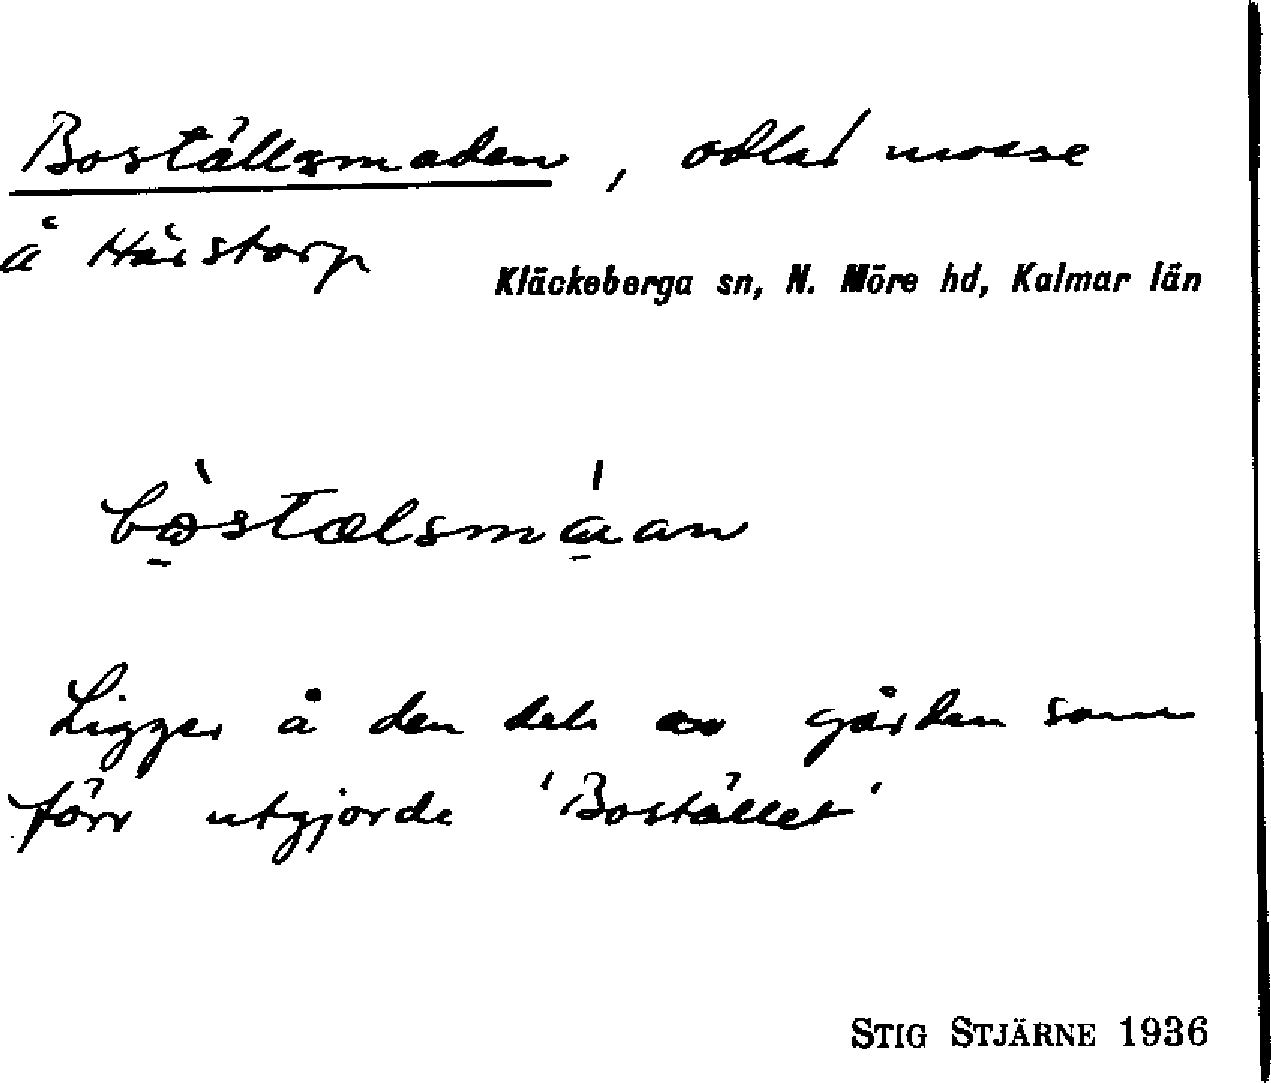 Boställsmaden, odlad mosse
å Harstorp
Kläckeberga sn, N. Möre hd, Kalmar län
bòstælsmáan
Ligger å den del av gården som
förr utgjorde 'Bostället'
STIG STJÄRNE 1936